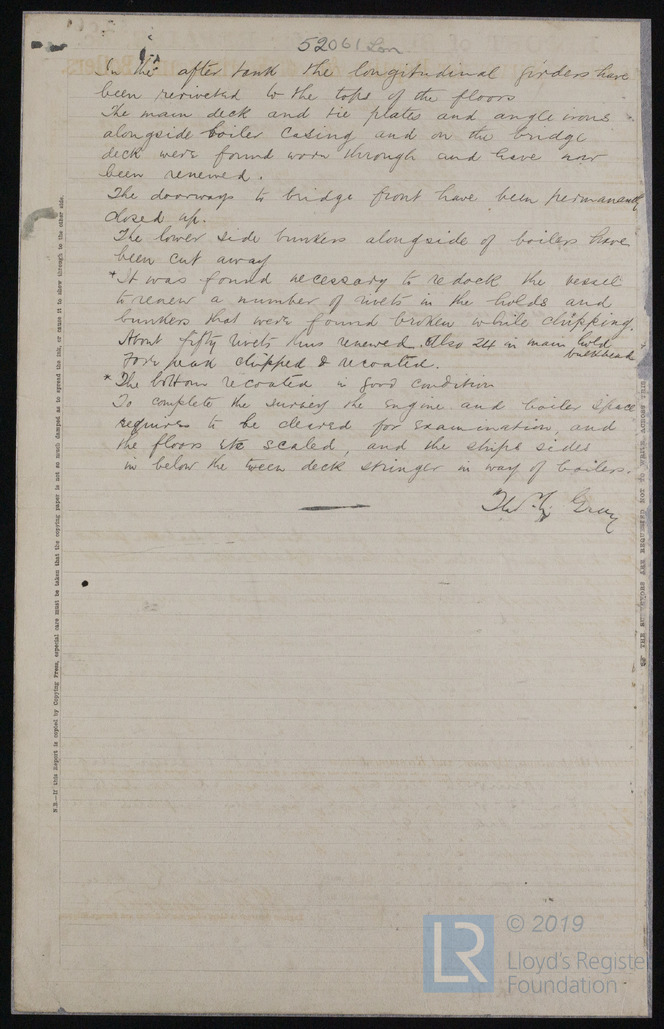 52061 Lon
In the after tank the longitudinal girders have
been reriveted to the tops of the floors
The main deck and tie plates and angle irons
alongside boiler casing and on the bridge
deck were found worn through and have now
been renewed.
The doorways to bridge front have been permanently
closed up.
The lower side bunkers alongside of boilers have
been cut away
*It was found necessary to redock the vessel
to renew a number of rivets in the holds and
bunkers that were found broken while chipping.
About fifty rivets thus renewed. Also 24 in main hold
bulkhead
Fore peak chipped & recoated.
*The bottom recoated in good condition
To complete the survey the engine and boiler space
requires to be cleared for examination, and
the floors etc scaled, and the ships sides
in below the tween deck stringer in way of boilers.
Gray
N.B.—If this Report is copied by Copying Press, especial care must be taken that the copying paper is not so much damped as to spread the ink, or cause it to show through to the other side.
THE SURVEYORS ARE REQUESTED NOT TO WRITE ACROSS THIS
© 2019
LR
Lloyd's Register
Foundation